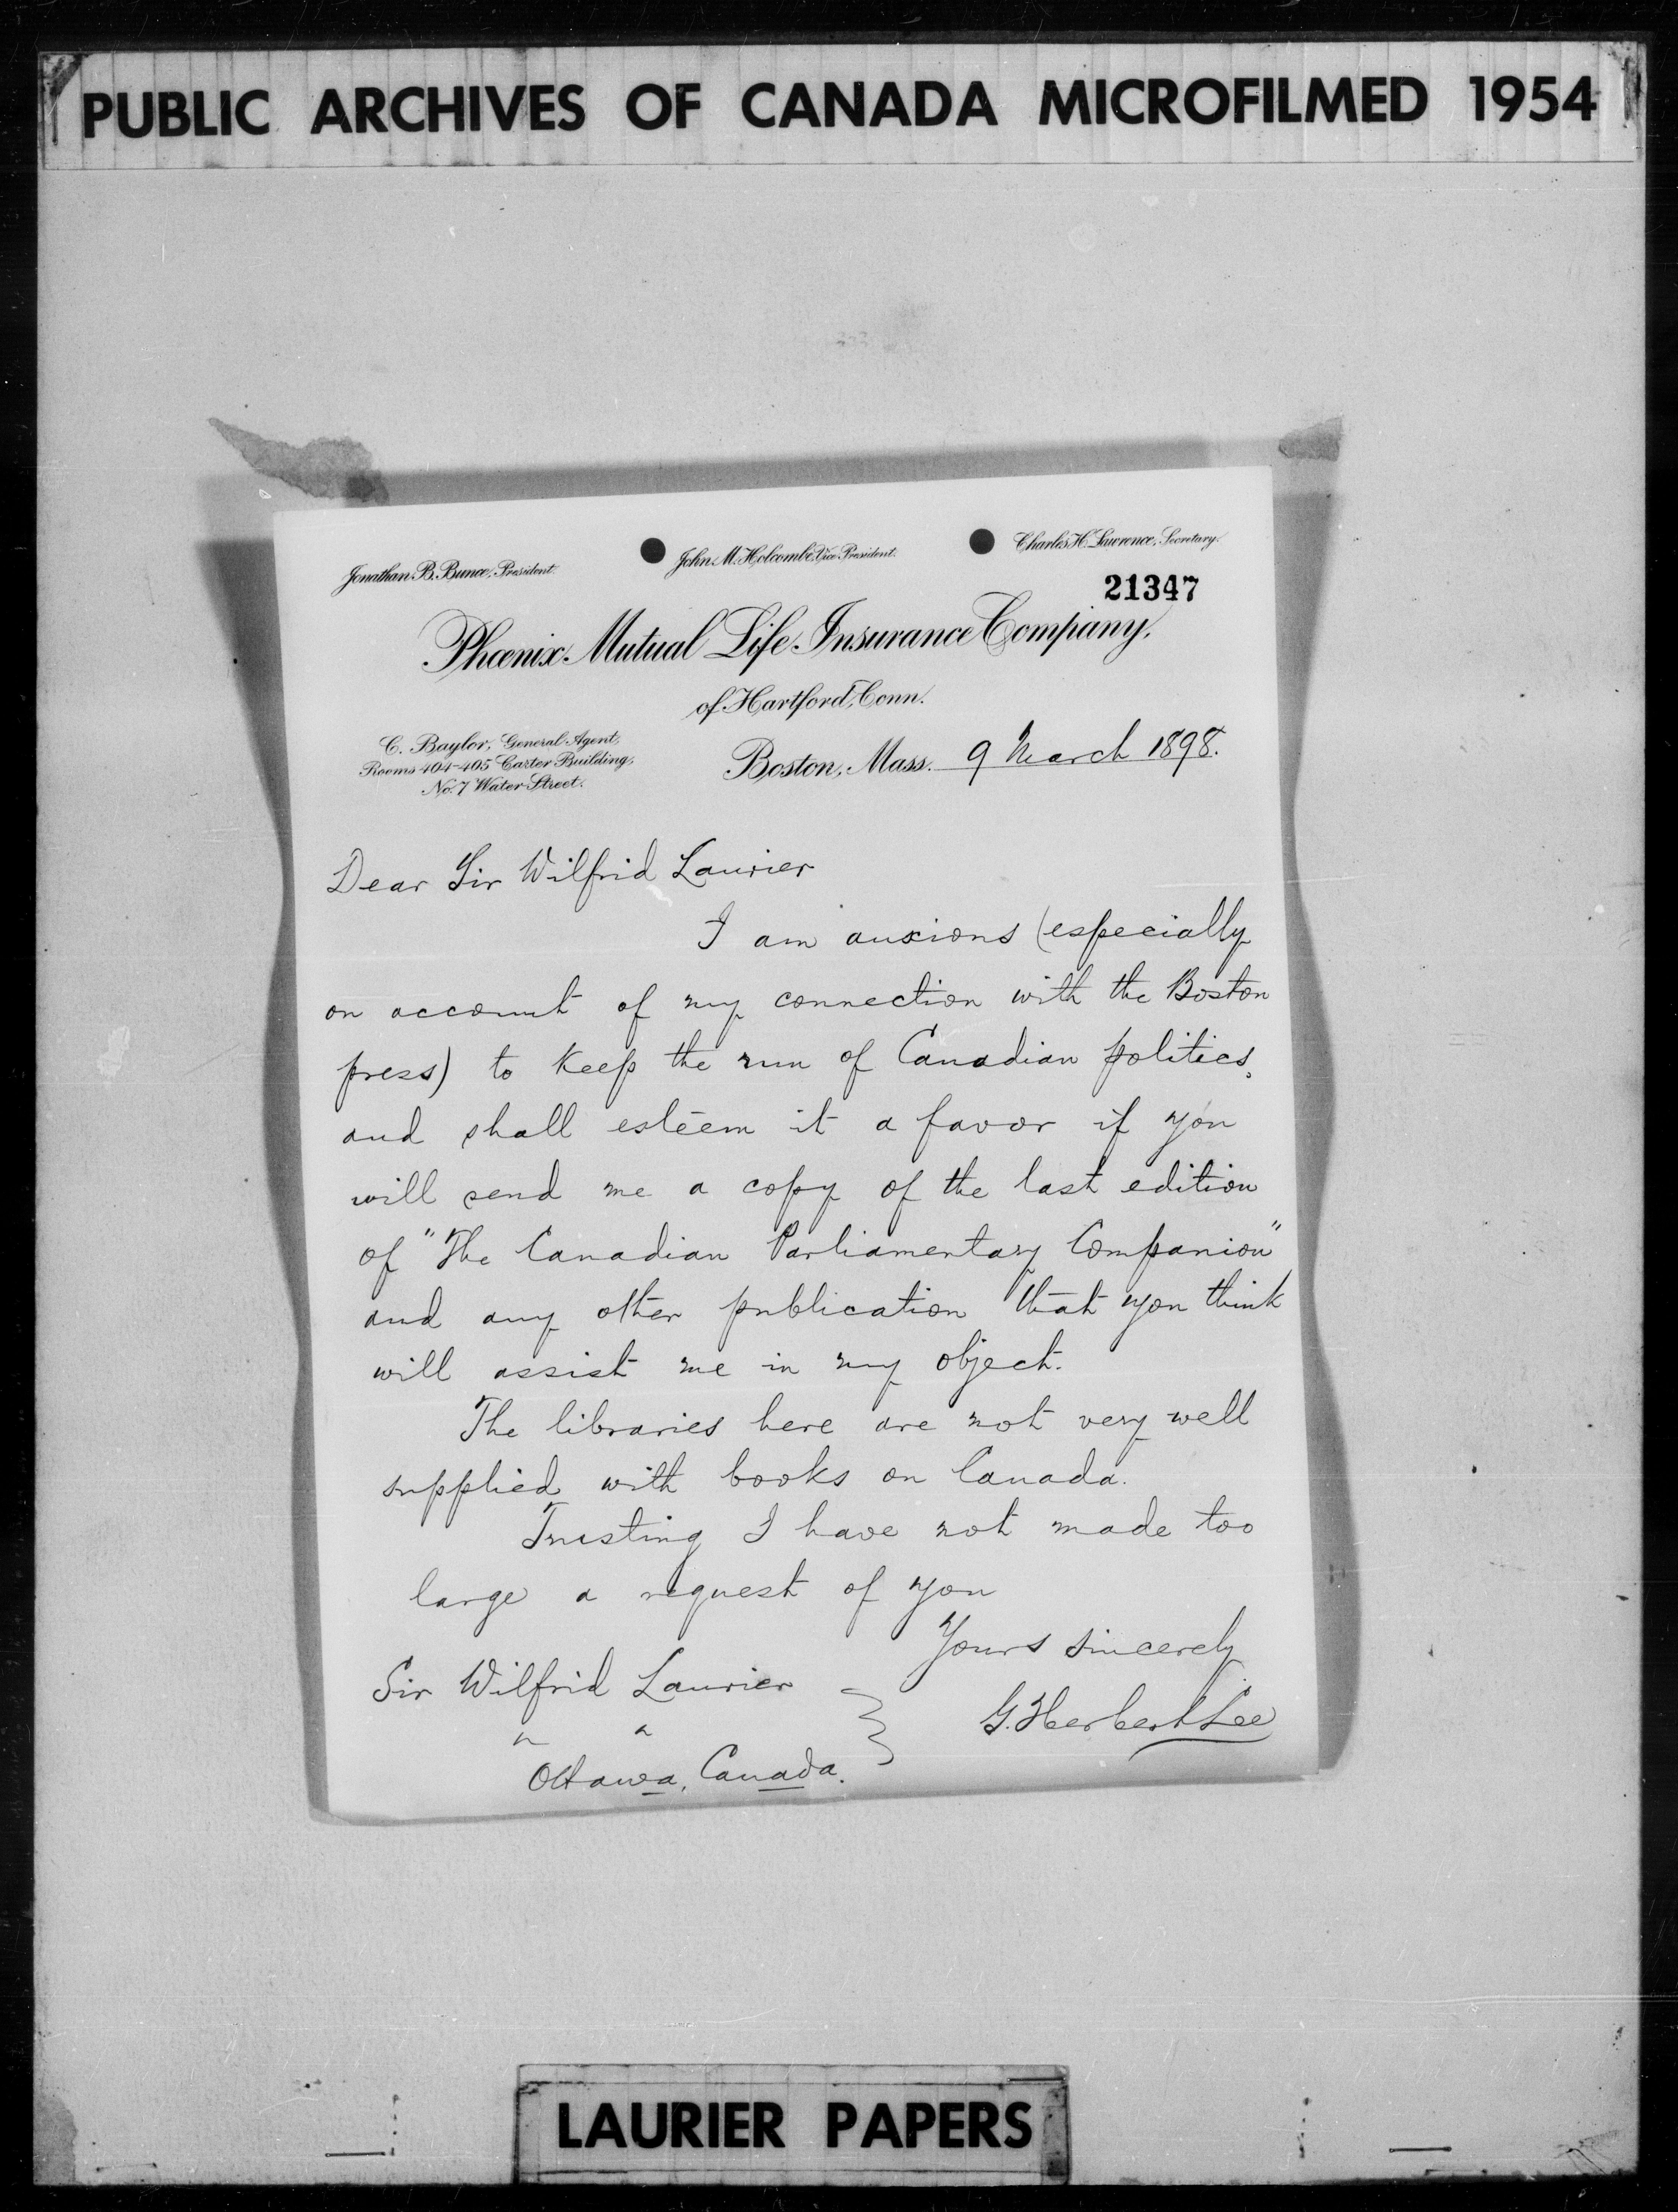 PUBLIC ARCHIVES OF CANADA MICROFILMED 1954
Jonathan B. Bunce, President. John M. Holcombe, Vice President. Charles H. Lawrence, Secretary.
21347
Phœnix Mutual Life Insurance Company,
of Hartford, Conn.
C. Baylor, General Agent,
Rooms 404-405 Carter Building,
No. 7 Water Street.
Boston, Mass. 9 March 1898.
Dear Sir Wilfrid Laurier
I am anxious (especially
on account of my connection with the Boston
press) to keep the run of Canadian politics,
and shall esteem it a favor if you
will send me a copy of the last edition
of "The Canadian Parliamentary Companion"
and any other publication that you think
will assist me in my object.
The libraries here are not very well
supplied with books on Canada.
Trusting I have not made too
large a request of you
Yours sincerely
G. Herbert Lee
Sir Wilfrid Laurier
" "
Ottawa, Canada.
LAURIER PAPERS